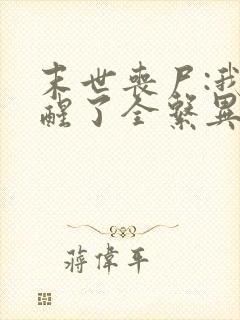 末世丧尸:我
醒了全系異
蔣偉平